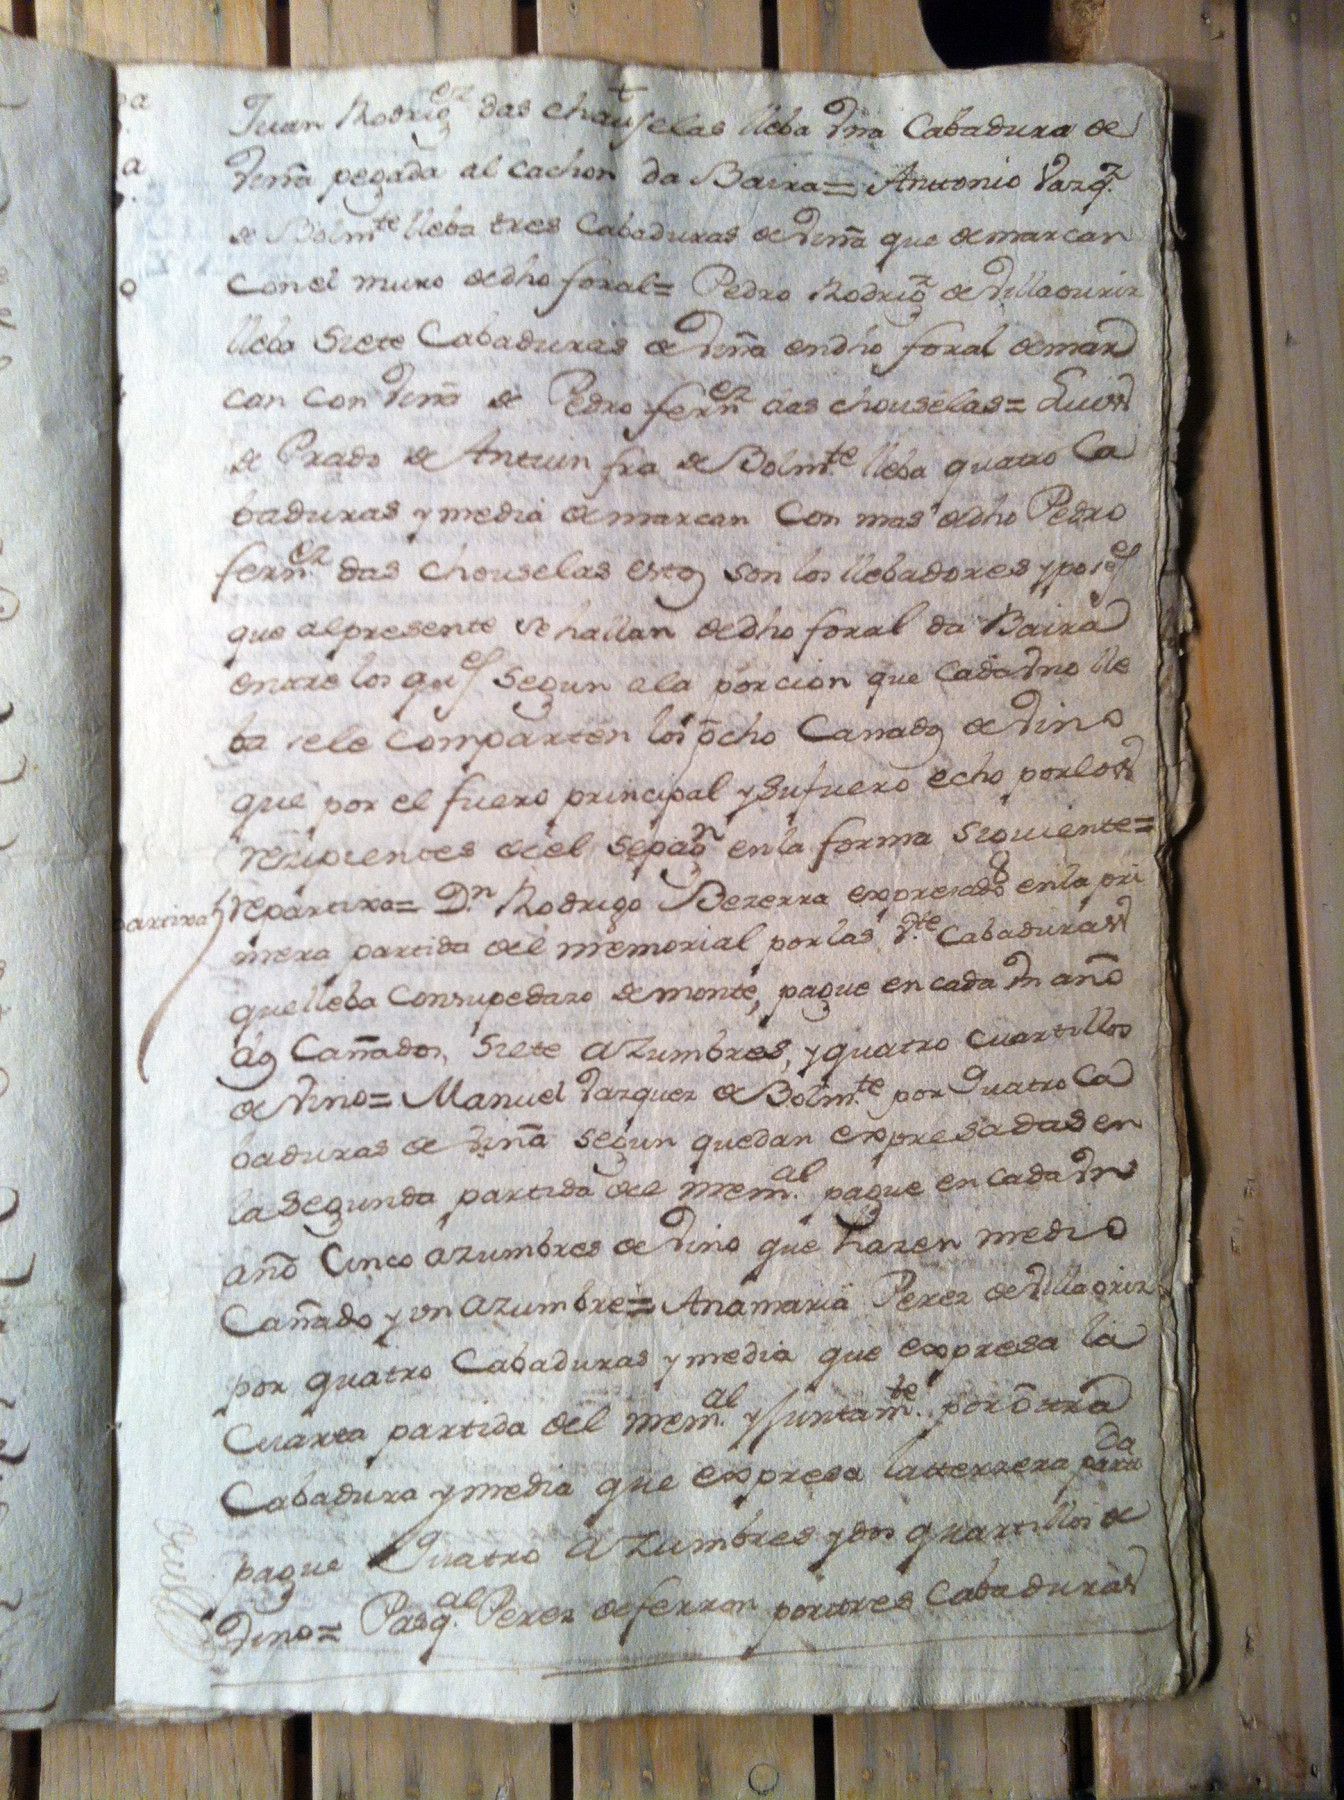 Juan Rodrig.ez das chauselas lleba vna Cabadura de
viña pegada al cachon da Baira= Anttonio Vazq.z
de Bolm.te lleba tres Cabaduras de viña que demarcan
con el muro de dho foral= Pedro Rodrig.z de Villaouriz
lleba siete Cabaduras de viña en dho foral demar
can con viña de Pedro fern.ez das chouselas= Luis
de Prado de Antuin fra de Bolm.te lleba quatro Ca
baduras y media demarcan con mas de dho Pedro
fern.ez das chouselas estos son los llebadores y
que alpresente se hallan de dho foral da Baira
entre los q.es segun ala porcion que cada vno lle
ba sele comparten los ocho Cañados de vino
que por el fuero principal y sufuero echo porlos
reziuientes deel sepag.n en la forma siguiente=
partixa repartixa= D.n Rodrigo Bezerra expresado en la pri
mera partida del memorial por las Cabaduras
quelleba consupedazo de monte, pague en cada vn año
dos Cañados, siete azumbres, y quatro cuartillos
de vino= Manuel Vazquez de Bolm.te por quatro Ca
baduras de viña segun quedan expresadas en
la segunda partida del mem.al pague en cada vn
año cinco azumbres de vino que hazen medio
Cañado y un azumbre= Anamaria Perez de Villaoriz
por quatro Cabaduras y media que expresa la
Cuarta partida del mem.al y juntam.te por otra
Cabadura y media que expresa latterzera part.da
pague quatro azumbres y dos quartillos de
vino= Pasq.al Perez de ferron portres Cabaduras